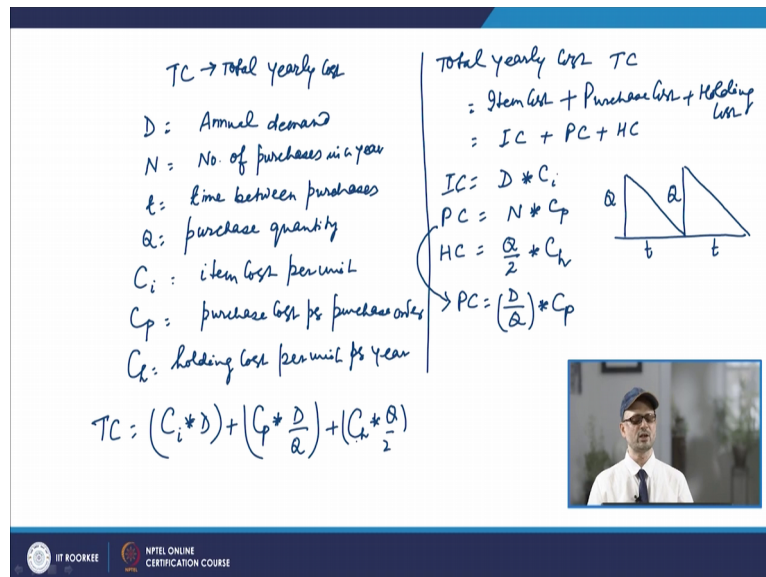 TC → Total yearly Cost
D : Annual demand
N : No. of purchases in a year
t : time between purchases
Q : purchase quantity
Ci : item Cost per unit
Cp : purchase Cost per purchase order
Ch : holding Cost per unit per year
TC = (Ci * D) + (Cp * D/Q) + (Ch * Q/2)
Total yearly Cost TC
= Item Cost + Purchase Cost + Holding
Cost
= IC + PC + HC
IC = D * Ci
PC = N * Cp
HC = Q/2 * Ch
PC = (D/Q) * Cp
Q Q
t t
IIT ROORKEE
NPTEL ONLINE
CERTIFICATION COURSE
NPTEL